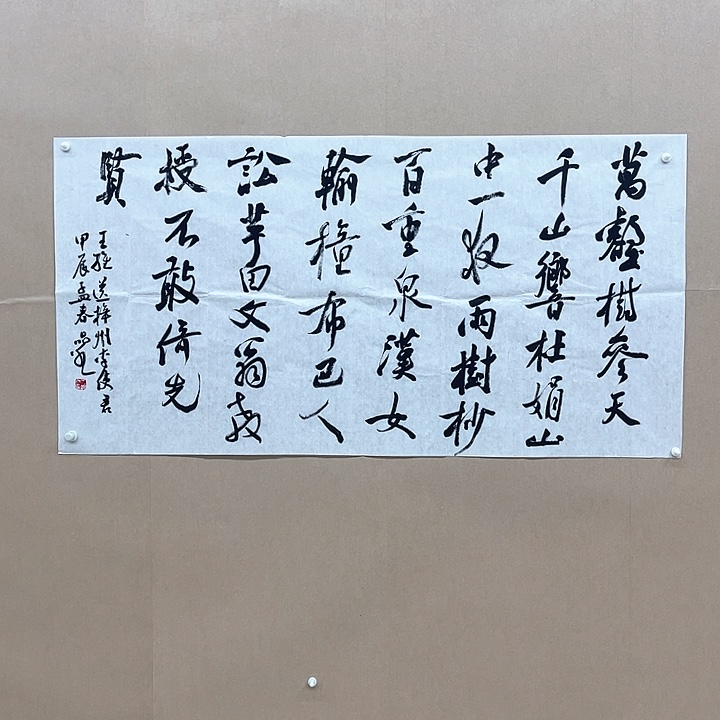 萬壑樹參天
千山響杜鵑山
中一夜雨樹杪
百重泉漢女
輸橦布巴人
訟芋田文翁教
授不敢倚先
賢
王維送梓州李使君
甲辰孟春